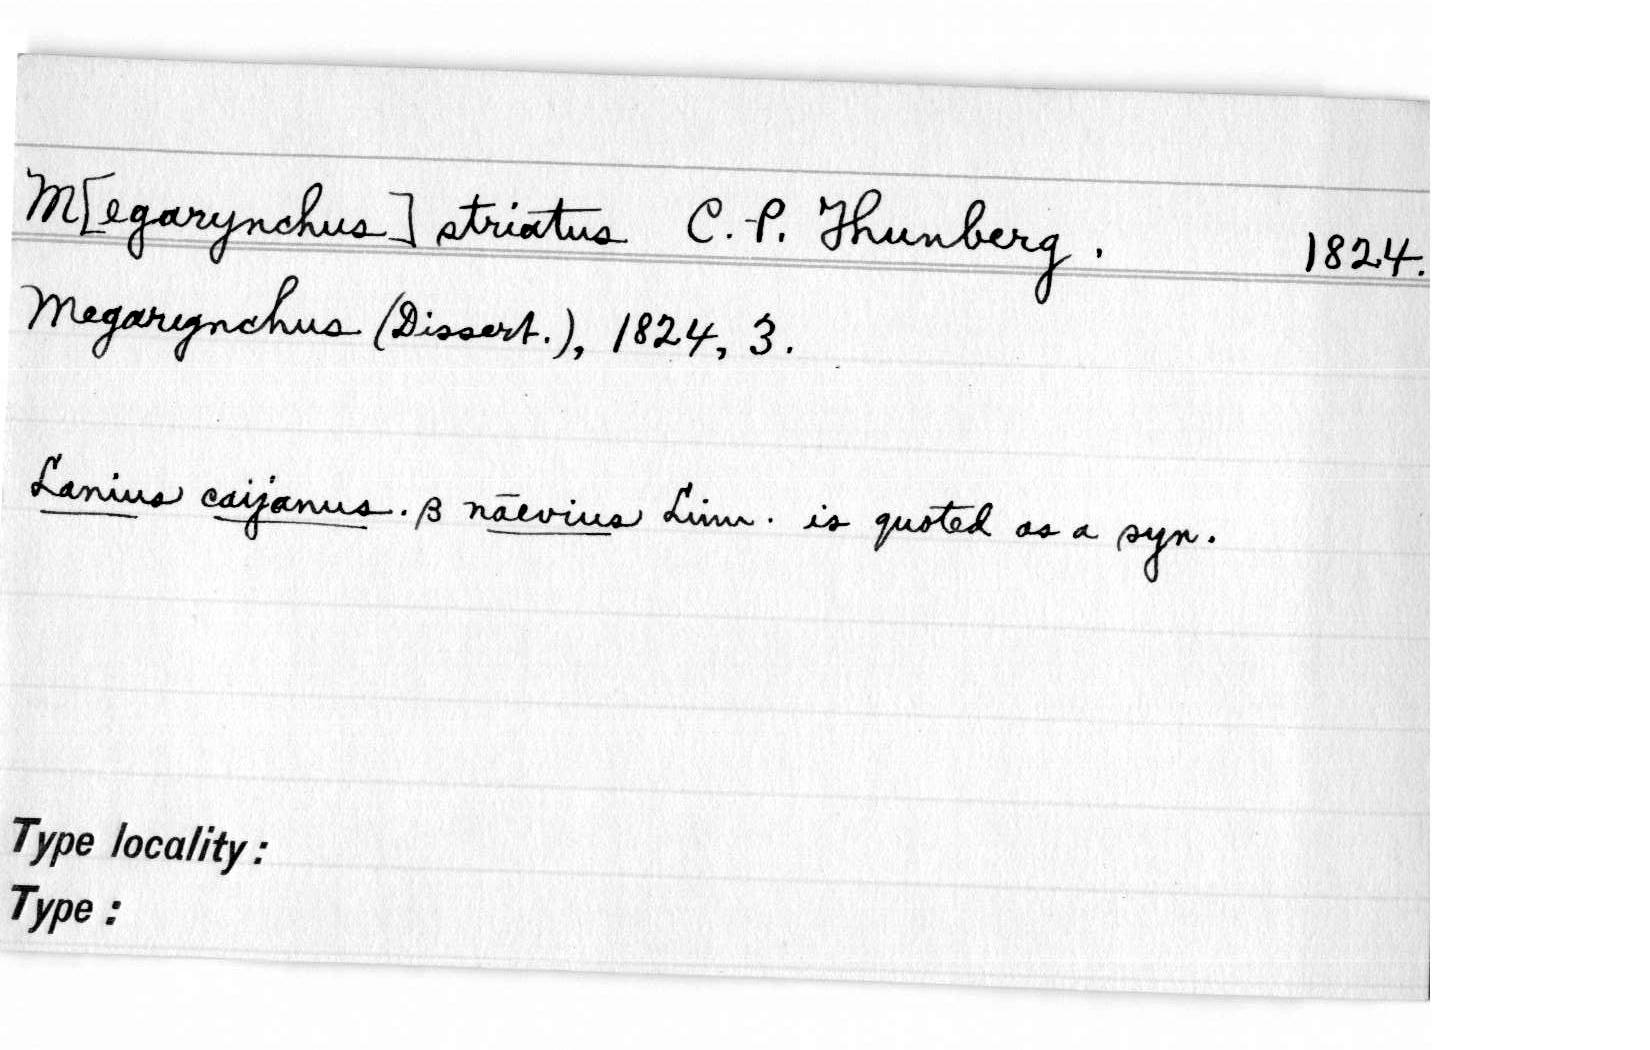 M[egarynchus] striatus C. P. Thunberg. 1824.
Megarynchus (Dissert.), 1824, 3.
Lanius caijanus. β nāevius Linn. is quoted as a syn.
Type locality:
Type: